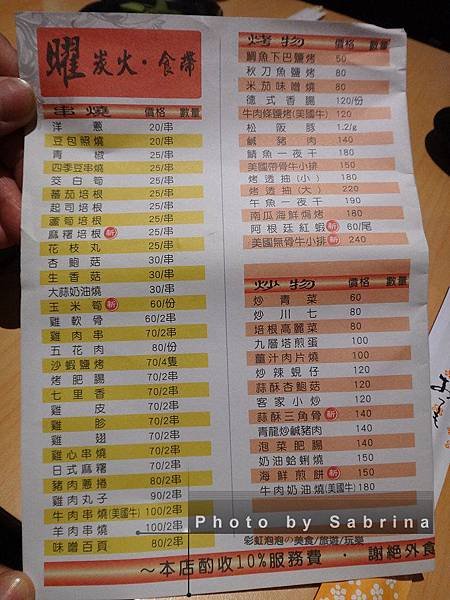 曜 炭火·食滯
串燒 價格 數量
洋蔥 20/串
豆包照燒 20/串
青椒 25/串
四季豆串燒 25/串
茭白筍 25/串
蕃茄培根 25/串
起司培根 25/串
蘆筍培根 25/串
麻糬培根 新 25/串
花枝丸 25/串
杏鮑菇 30/串
生香菇 30/串
大蒜奶油燒 30/串
玉米筍 新 60/份
雞軟骨 60/2串
雞肉串 70/2串
五花肉 80/份
沙蝦鹽烤 70/4隻
烤肥腸 70/2串
七里香 70/2串
雞皮 70/2串
雞胗 70/2串
雞翅 70/2串
雞心串燒 70/2串
日式麻糬 70/2串
豬肉蔥捲 80/2串
雞肉丸子 90/2串
牛肉串燒(美國牛) 100/2串
羊肉串燒 100/2串
味噌百頁 80/2串
烤物 價格 數量
鯛魚下巴鹽烤 50
秋刀魚鹽烤 80
米茄味噌燒 80
德式香腸 120/份
牛肉條鹽烤(美國牛) 120
松阪豚 1.2/g
鹹豬肉 140
鯖魚一夜干 180
美國帶骨牛小排 150
烤透抽(小) 180
烤透抽(大) 220
午魚一夜干 190
南瓜海鮮焗烤 180
阿根廷紅蝦 新 60/尾
美國無骨牛小排 新 240
炒物 價格 數量
炒青菜 60
炒川七 80
培根高麗菜 80
九層塔煎蛋 100
薑汁肉片燒 100
炒辣蜆仔 120
蒜酥杏鮑菇 120
客家小炒 120
蒜酥三角骨 新 140
青龍炒鹹豬肉 140
泡菜肥腸 140
奶油蛤蜊燒 150
海鮮煎餅 新 150
牛肉奶油燒(美國牛) 180
Photo by Sabrina
彩虹泡泡の美食/旅遊/玩樂
～本店酌收10%服務費 · 謝絕外食